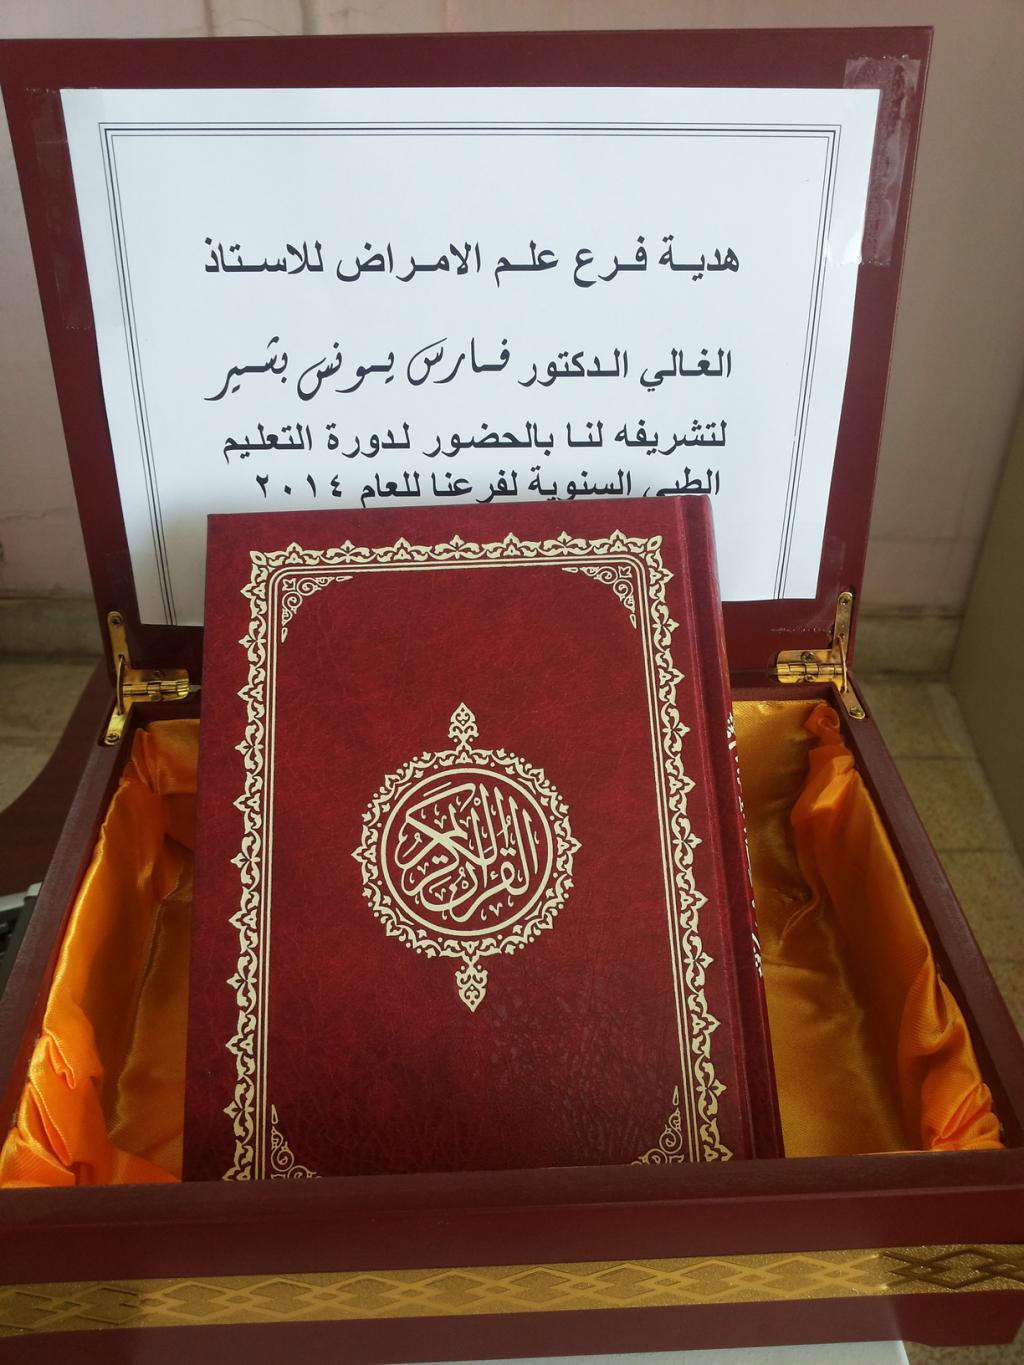 هدية فرع علم الامراض للاستاذ
الغالي الدكتور فارس يونس بشير
لتشريفه لنا بالحضور لدورة التعليم
الطبي السنوية لفرعنا للعام ٢٠١٤
القرآن الكريم